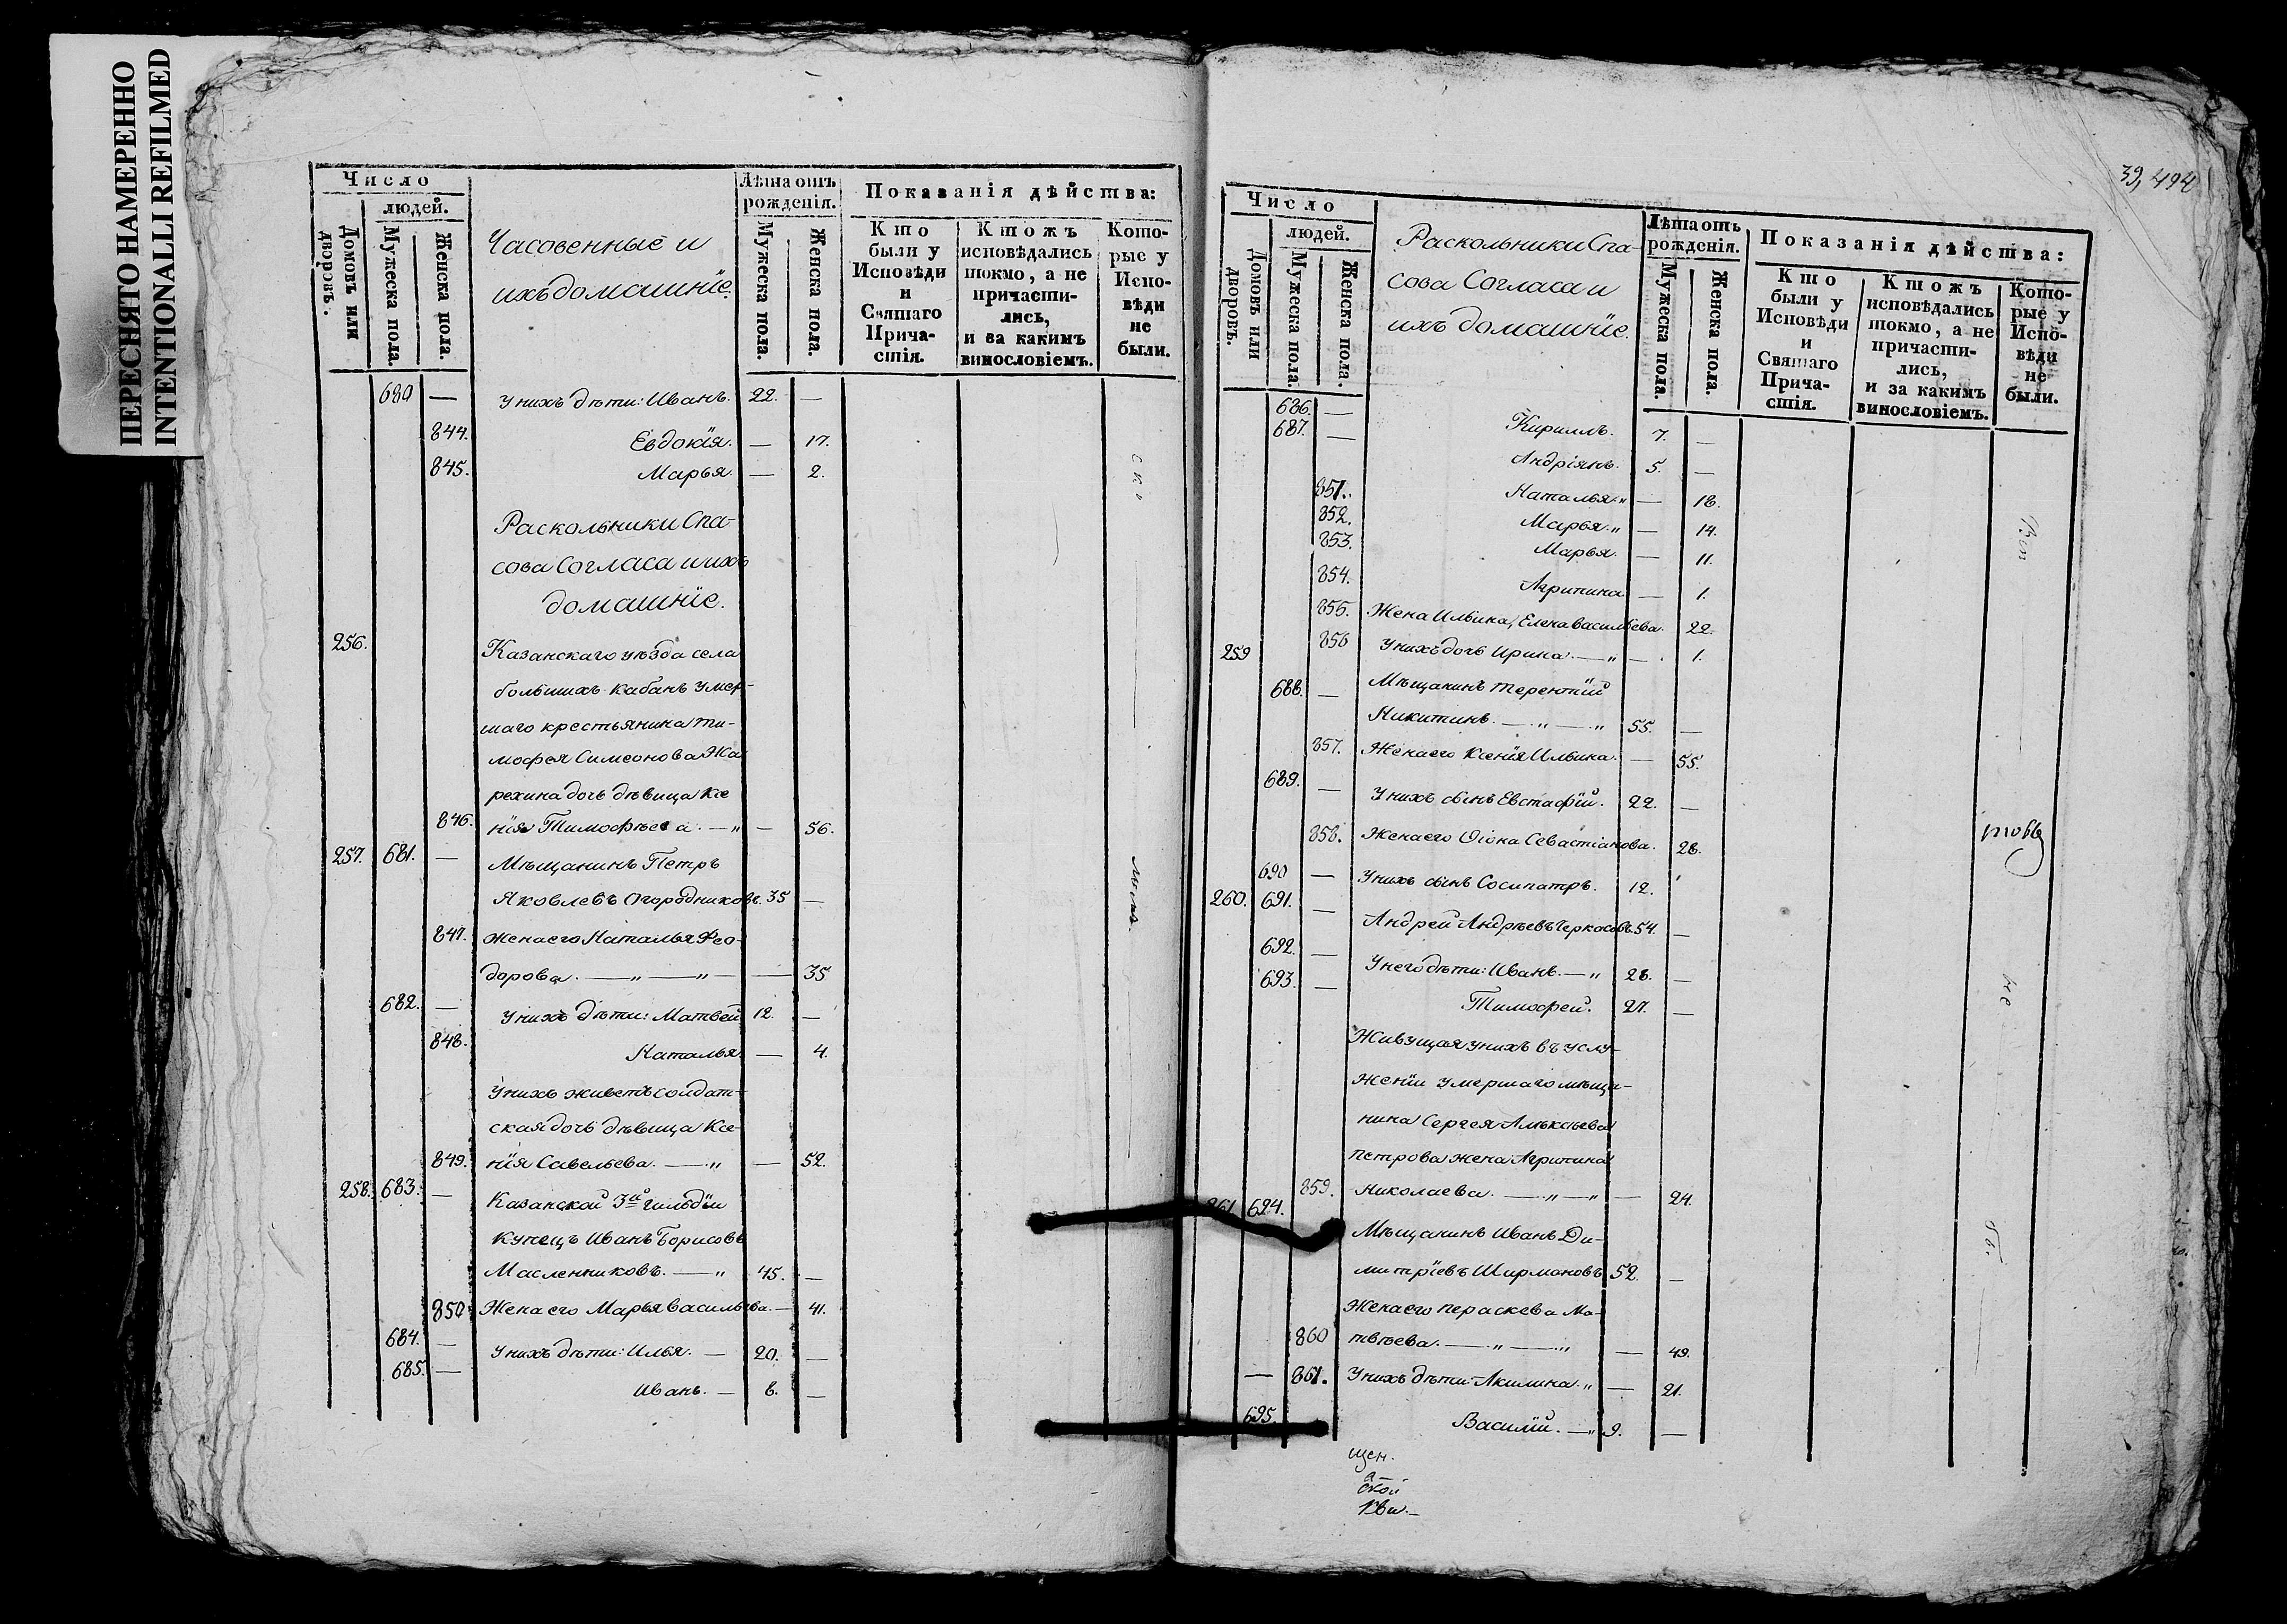 ПЕРЕСНЯТО НАМЕРЕННО
INTENTIONALLI REFILMED
Число
людей.
Домовъ или дворовъ.
Мужеска пола.
Женска пола.
Часовенные и
ихъ домашнїе.
Лѣта отъ рожденія.
Мужеска пола.
Женска пола.
Показанія дѣйства:
Кто были у Исповѣди и Святаго Причастія.
Ктожъ исповѣдались токмо, а не причастились, и за какимъ винословіемъ.
Которые у Исповѣди не были.
680 — У нихъ дѣти: Иванъ. 22. —
844. Евдокїя. — 17.
845. Марья. — 2.
Раскольники Спа-
сова Согласа и ихъ
домашнїе.
256. Казанскаго уѣзда села
большихъ Кабанъ умер-
шаго крестьянина Ти-
мофея Симеонова Жа
рехина дочь дѣвица Ксе
846. нїя Тимофѣева. — „ — 56.
257. 681. — Мѣщанинъ Петръ
Яковлевъ Огородниковъ. 35 —
847. Жена его Наталья Фео-
дорова. — „ — „ — 35
682. — У нихъ дѣти: Матвей 12. —
848. Наталья — 4.
У нихъ живетъ солдат-
ская дочь дѣвица Ксе-
849. нїя Савельева. — „ — 52.
258. 683. — Казанской 3й гильдїи
купецъ Иванъ Борисовъ
Масленниковъ. — „ 45. —
850. Жена его Марья Васильева. — 41.
684. — У нихъ дѣти: Илья. — 20. —
685. — Иванъ. — 8. —
39, 494
Число
людей.
Домовъ или дворовъ.
Мужеска пола.
Женска пола.
Раскольники Спа-
сова Согласа и
ихъ домашнїе.
Лѣта отъ рожденія.
Мужеска пола.
Женска пола.
Показанія дѣйства:
Кто были у Исповѣди и Святаго Причастія.
Ктожъ исповѣдались токмо, а не причастились, и за какимъ винословіемъ.
Которые у Исповѣди не были.
686. — Кириллъ. 7. —
687. — Андрїянъ. 5. —
851. Наталья. „ — 18.
852. Марья. „ — 14.
853. Марья. — 11.
854. Агрипина — 1.
855. Жена Ильина, Елена Васильева. 22.
856 У нихъ дочь Ирина. — „ — 1.
259 688. — Мѣщанинъ Терентїй
Никитинъ. — „ — „ 55. —
857. Жена его Ксенїя Ильина. — 55.
689. — У нихъ сынъ Евстафїй. 22. —
858. Жена его Ѳїона Севастїанова. 28.
690 — У нихъ сынъ Сосипатръ. 12.
260. 691. — Андрей Андрѣевъ Черкасовъ. 54. —
692. — У него дѣти: Иванъ. — „ 28. —
693. — Тимофей. 27. —
Живущая у нихъ въ услу-
женїи умершаго мѣща-
нина Сергея Алѣксѣева
Петрова жена Агрипина
859. Николаева. — „ — „ — 24.
261 694. Мѣщанинъ Иванъ Ди-
митрїевъ Ширмановъ 52. —
Жена его Параскева Ма-
860 твѣева. — „ — „ — 49.
— 861. У нихъ дѣти: Акилина. „ — 21.
695. Василїй. — „ 9. —